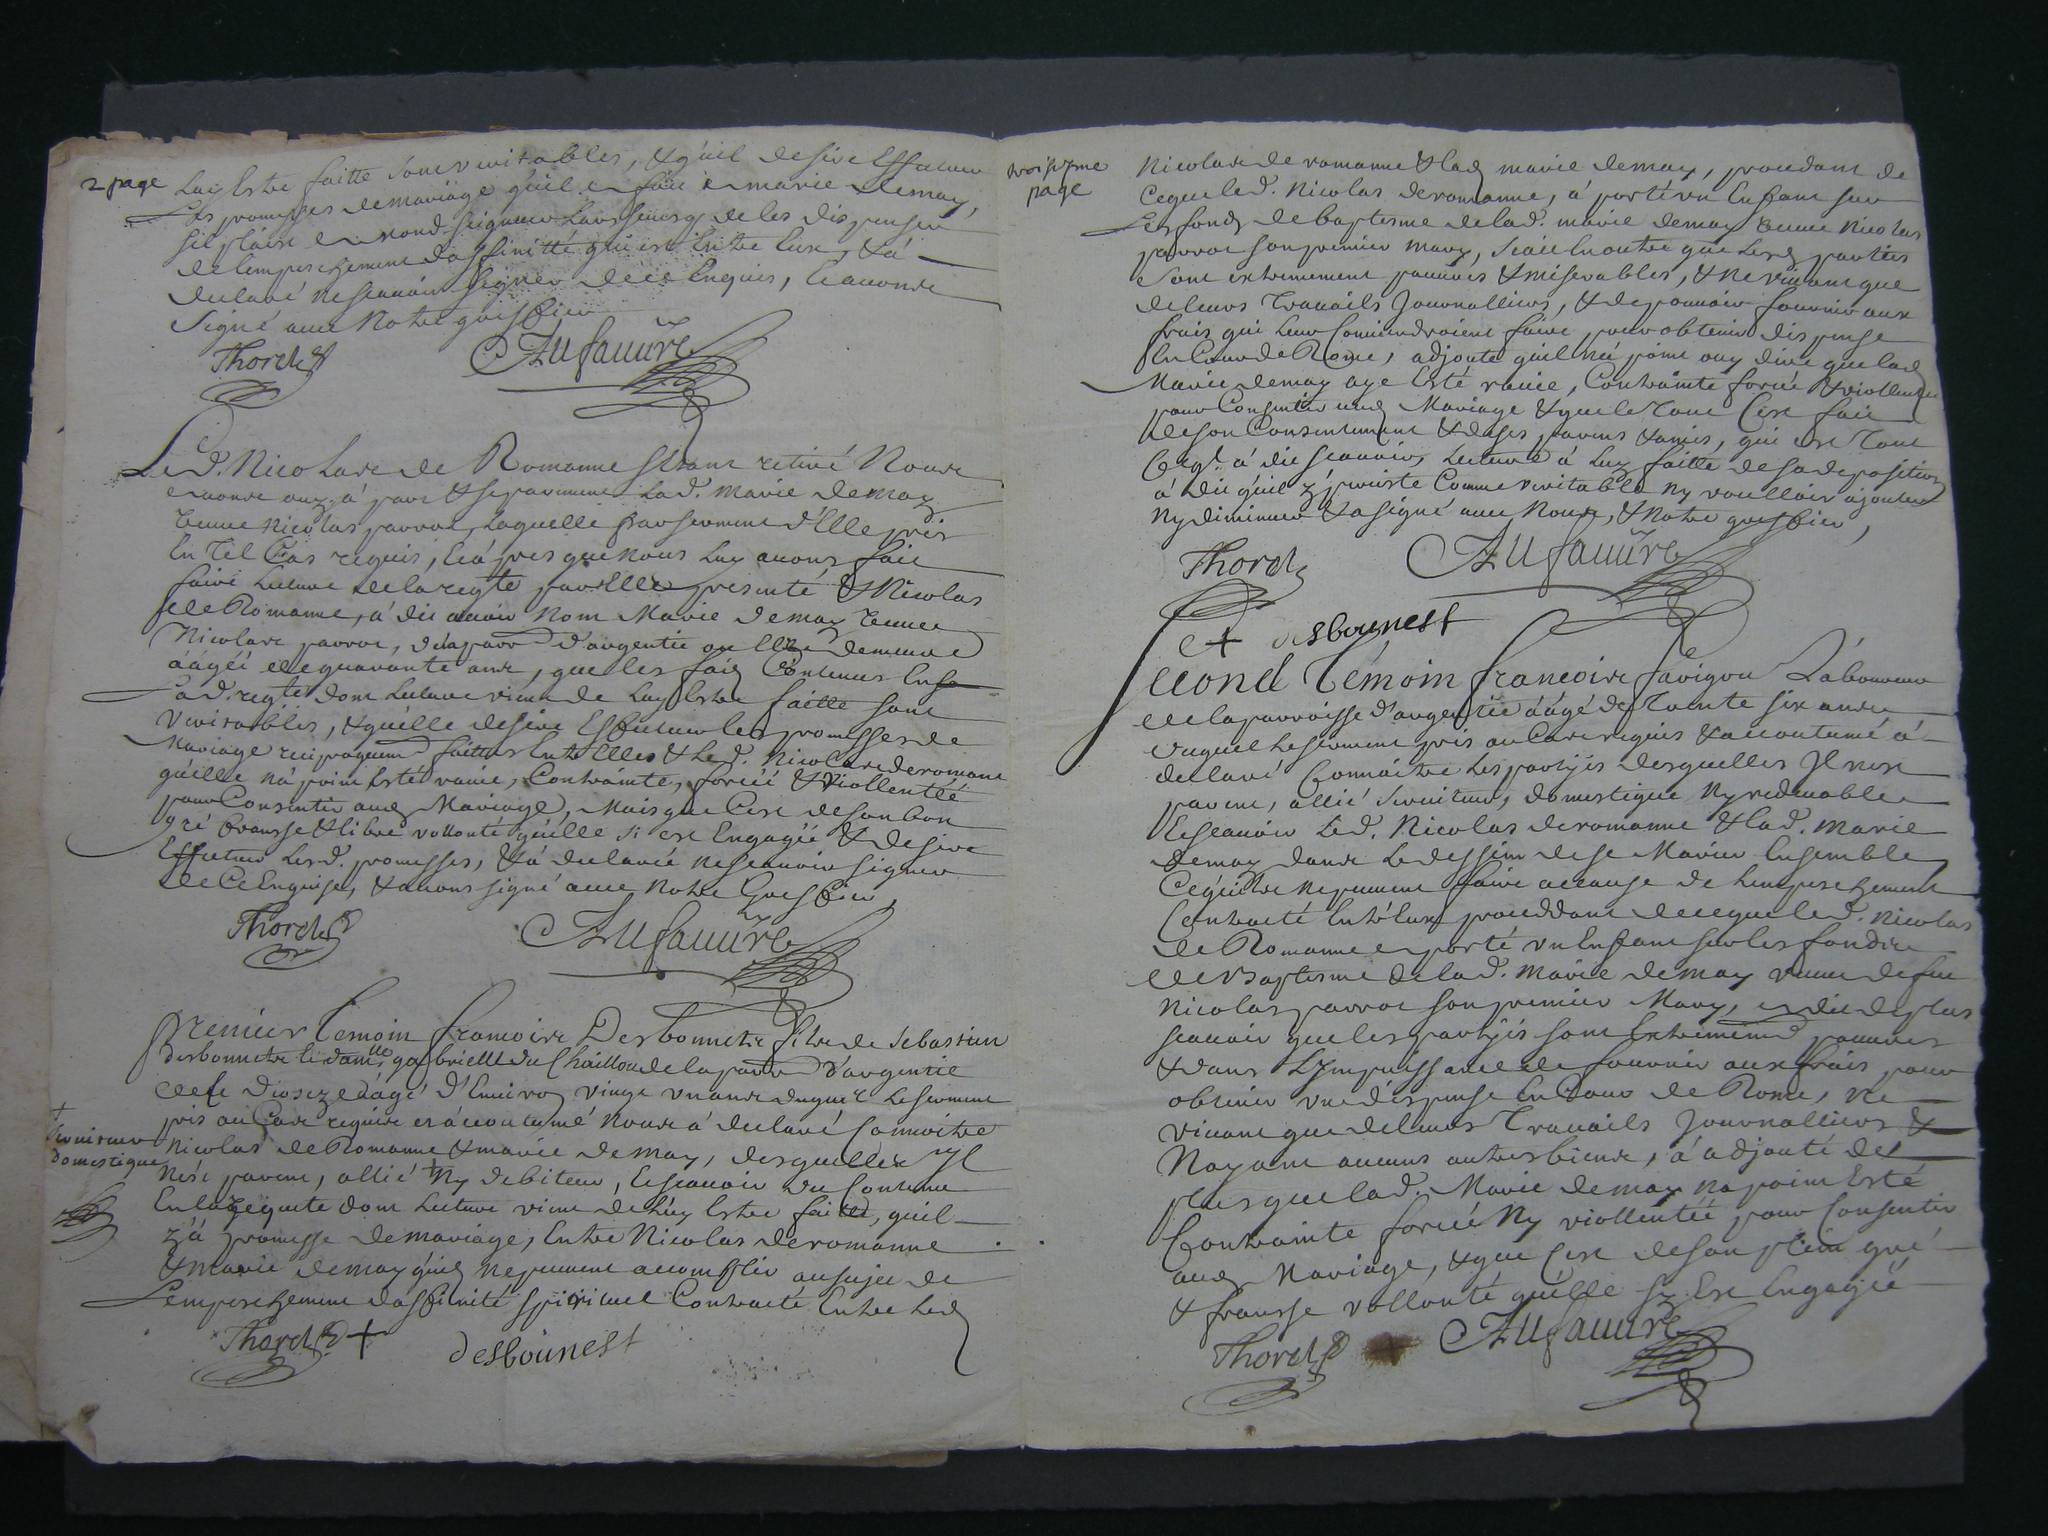 2 page
Luy Estre faitte sont veritables, & q'uil desire Effectuer
Les promesses de mariage q'uil a fait a marie demay,
sil plaise a mond. seigneur de les dispenser
de lempeschement d'affinitté qui est Entre Eux, & a
declaré nescauoir signer de ce Enquis, Et auons
signé auec Notre greffier
Thoret Aufauure
Led. Nicolas de Romanne s'Etant retiré Nous
auons ouy a part & separement Lad. marie demay
veuue Nicolas parrot, Laquelle par serment d'Elle pris
En Tel Cas requis, Et a pres que nous Luy auons fait
faire Lecture de la reqte par Elle presenté & Nicolas
de Romanne, a dit auoir Nom Marie demay veuue
Nicolas parrot, de la parr d'argentie ou Elle demeure
áágéé de quarante ans, que les faits Contenus En sa
Lad. reqte dont Lecture vient de Luy Estre faitte sont
Veritables, & quélle desire Effectuer les promesses de
Mariage reciproquem faittes Entre Elles & Led. Nicolas deromane
quélle na point Esté rauie, Contrainte, forcéé & Viollentéé
pour Consentir aud Mariage, Mais que C'est de son bon
gré franche & libre vollonté quélle si est Engagéé & desire
Effectuer Lesd. promesses, & a declaréé nescauoir signer
de Ce Enquise, & auons signé auec Notre Greffier,
Thoret Aufauure
Premier Temoin francois Desbounets fils de Sebastien
desbounets et dam.lle gabrielle du Chaillou de la parr d'argentie
de Ce Dioceze áágé d'Enuiron vingt vn ans duquel Le serment
pris au Cas requis et accoutumé Nous a declaré Connoitre
Nicolas de Romanne & marie demay, desquelles Jl
+ seruiteur domestique
Nést parent, allié + Ny debiteur, Et scauoir du Contenu
En la requete dont Lecture vient de Luy Estre faitte, quil
y á promesse de mariage, Entre Nicolas deromanne
& marie demay quils ne peuuent accomplir au sujet de
Lempeschement d'affinité spirituel Contracté Entre Led
Thoret + desbounest
troisizme page
Nicolas de romanne & lad marie demay, procedant de
Ceque led. Nicolas deromanne, á porté vn Enfant sur
Les fonds de baptesme de lad. marie demay veuue Nicolas
parrot son premier mary, scait En outre que Lesd parties
sont extremement pauures & miserables, & ne viuant que
de leurs Trauails Journalliers, & de pouuoir fournir aux
frais qui Leur Conuiendroient faire pour obtenir dispense
En Cour de Rome, adjoute quil ná point ouy dire que lad
Marie demay aye Esté rauie, Contrainte forcéé & viollentéé
pour Consentir aud Mariage & que le Tout C'est fait
de son Consentement & de ses parens & amis, qui est Tout
Ce quil á dit scauoir, Lecture á Luy faitte de sa deposition
á dit quil y persiste Comme veritable Ny voulloir ajouter
Ny diminuer & a signé auec Nous, & Notre greffier,
Thoret Aufauure
+ desbounest
Second Témoin francois fauigon Laboureur
de la parroisse d'argentie áágé de Trente six ans
duquel Le serment pris au Cas requis & accoutumé á
declaré Connoitre Les partyes desquelles Jl nest
parent, allié seruiteur, domestique Ny redeuable
Et scauoir Led. Nicolas deromanne & lad. Marie
demay dans Le dessein de se Marier Ensemble
Ce quils ne peuuent faire a cause de Lempeschement
Contracté Entre Eux procedant de ce que led. Nicolas
de Romanne a porté vn Enfant sur les fonds
de Baptesme de lad. Marie demay veuue de feu
Nicolas parrot son premier Mary, a dit de plus
scauoir que les partyes sont Extremem pauures
& dans L'Jmpuissance de fournir aux frais pour
obtenir vne dispense En Cour de Rome, ne
viuant que de leurs Trauails Journalliers &
Nayant aucuns autres biens, á adjouté de
plus que lad. Marie demay na point Esté
Contrainte forcéé Ny viollentéé pour Consentir
aud Mariage, & que C'est de son plein gré
& franche vollonté quélle sy Est Engagéé
Thoret Aufauure